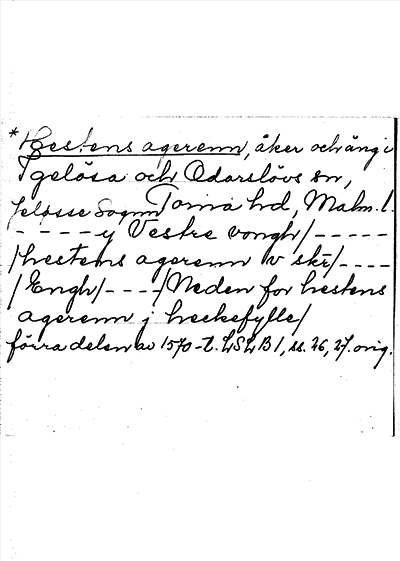 *Hestens agerenn, åker och äng i
Igelösa och Odarslövs sn,
Jeløsse Sognn Torna hd, Malm. l.
- - - - - y Vestre vongh/- - - - -
/hestens agerenn v skr/- - - -
/Engh/- - - -/Neden for hestens
agerenn j heckefylle/
förra delen av 1570-t. LSLB 1, ss. 26, 27. orig.